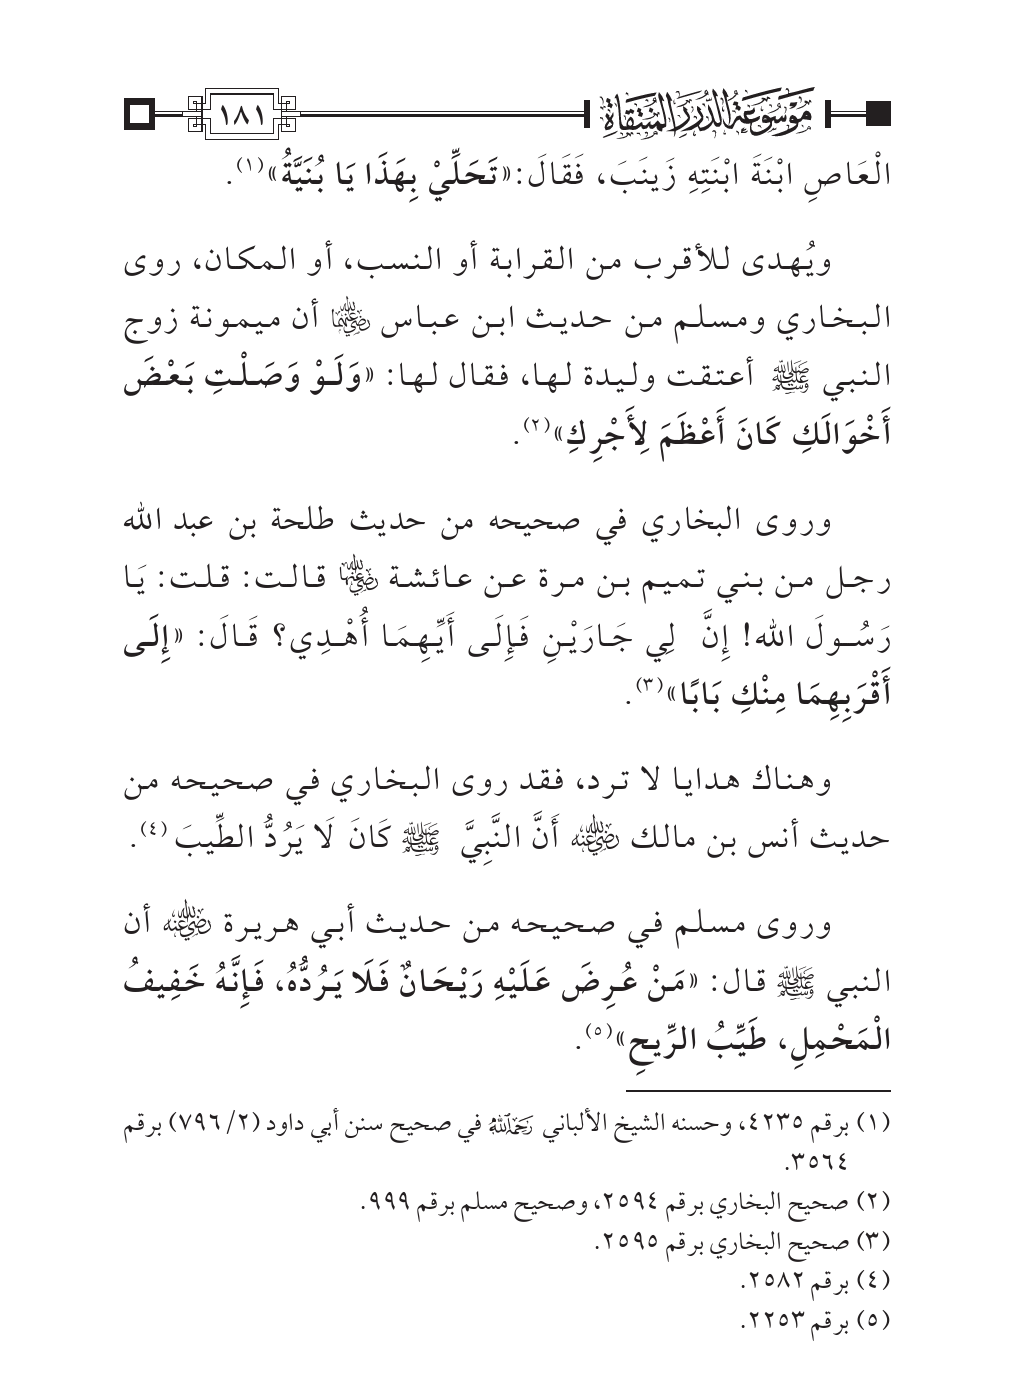 موسوعة الدرر المنتقاة
١٨١
الْعَاصِ ابْنَةَ ابْنَتِهِ زَينَبَ، فَقَالَ: «تَحَلِّيْ بِهَذَا يَا بُنَيَّةُ»(١).
ويُهدى للأقرب من القرابة أو النسب، أو المكان، روى
البخاري ومسلم من حديث ابن عباس رضي الله عنهما أن ميمونة زوج
النبي ﷺ أعتقت وليدة لها، فقال لها: «وَلَوْ وَصَلْتِ بَعْضَ
أَخْوَالَكِ كَانَ أَعْظَمَ لِأَجْرِكِ»(٢).
وروى البخاري في صحيحه من حديث طلحة بن عبد الله
رجل من بني تميم بن مرة عن عائشة رضي الله عنها قالت: قلت: يَا
رَسُولَ الله! إِنَّ لِي جَارَيْنِ فَإِلَى أَيِّهِمَا أُهْدِي؟ قَالَ: «إِلَى
أَقْرَبِهِمَا مِنْكِ بَابًا»(٣).
وهناك هدايا لا ترد، فقد روى البخاري في صحيحه من
حديث أنس بن مالك رضي الله عنه أَنَّ النَّبِيَّ ﷺ كَانَ لَا يَرُدُّ الطِّيبَ (٤).
وروى مسلم في صحيحه من حديث أبي هريرة رضي الله عنه أن
النبي ﷺ قال: «مَنْ عُرِضَ عَلَيْهِ رَيْحَانٌ فَلَا يَرُدُّهُ، فَإِنَّهُ خَفِيفُ
الْمَحْمِلِ، طَيِّبُ الرِّيحِ»(٥).
(١) برقم ٤٢٣٥، وحسنه الشيخ الألباني رحمه الله في صحيح سنن أبي داود (٢/ ٧٩٦) برقم
٣٥٦٤.
(٢) صحيح البخاري برقم ٢٥٩٤، وصحيح مسلم برقم ٩٩٩.
(٣) صحيح البخاري برقم ٢٥٩٥.
(٤) برقم ٢٥٨٢.
(٥) برقم ٢٢٥٣.